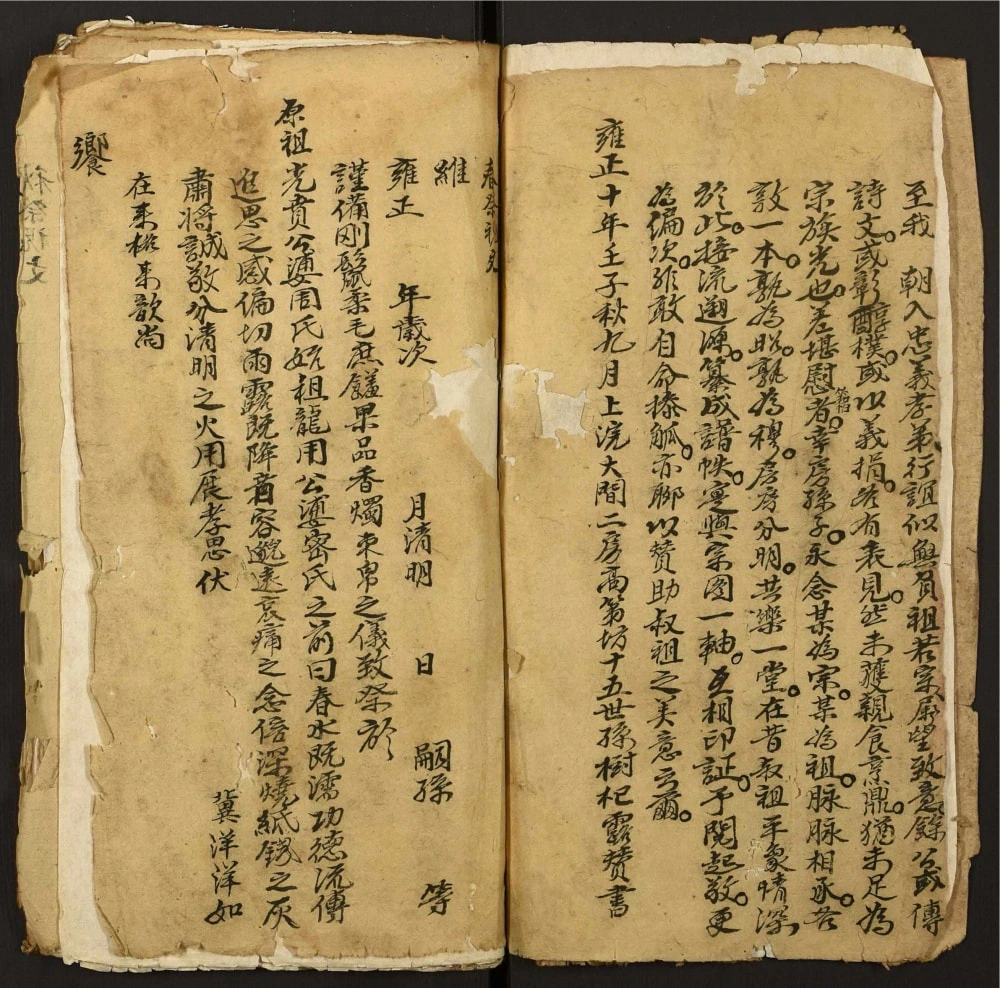 至我　朝入忠義孝弟行誼似無負祖若宗屬望致意餘公或傳
詩文或彰醇樸或以義捐皆有表見然未獲親食烹鼎猶未足為
宗族光也差堪慰者幸房孫子永念某為宗某為祖脉脉相承
敦一本孰為昭孰為穆房房分明共樂一堂在昔叔祖平象情深
於此接流遡源纂成譜帙寔與宗圖一軸互相印証予閱起敬更
為編次非敢自命操觚亦聊以賛助叔祖之美意云爾
雍正十年壬子秋九月上浣大間二房高第坊十五世孫樹杞露賛書
春祭祝文
維
雍正　年歲次　月清明　日　嗣孫　等
謹備剛鬣柔毛庶饈果品香燭束帛之儀致祭於
原祖光貴公婆周氏妣祖龍用公婆密氏之前曰春水既濡功德流傳
追思之感偏切雨露既降音容邈遠哀痛之念倍深燒紙鏹之灰
肅將誠敬分清明之火用展孝思伏　冀洋洋如
在來格來歆尚
饗